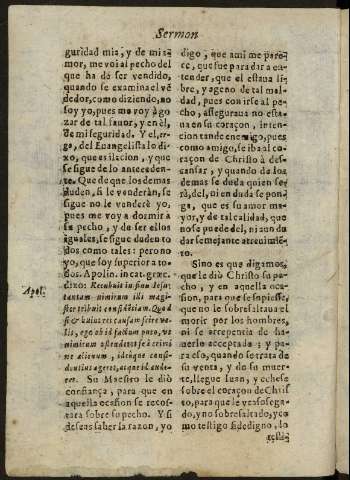 Sermon
guridad mia, y de mi a-
mor, me voi al pecho del
que ha de ser vendido,
quando se examina el vẽ
dedor, como diziendo, no
soy yo, pues me voy à go
zar de tal fauor, y en èl,
de mi seguridad. Y el, er-
ga, del Euangelista lo di-
xo, que es ilacion, y que
se sigue de lo anteceden-
te. Que de que los demas
duden, si le venderàn, se
sigue no le venderè yo,
pues me voy a dormir à
su pecho, y de ser ellos
iguales, se sigue duden to
dos como tales: pero no
yo, que soy superior a to-
dos. Apolin. in cat. græc.
Apol.
dixo: Recubuit in sinu Iesu:
tantam nimirum illi magi-
ster tribuit confidētiam. Quod
si & huius rei causam scire ve-
lis, ego ob id factum puto, vt
nimirum ostenderet se à crimi
ne alienum, ideoque confi-
dentius ageret, atque id aude-
ret. Su Maestro le diò
confiança, para que en
aquella ocasion se recos-
tara sobre su pecho. Y si
deseas saber la razon, yo
digo, que a mi me pare-
ce, que fue para dar a en-
tender, que el estaua li-
bre, y ageno de tal mal-
dad, pues con irse al pe-
cho, asseguraua no esta-
ua en su coraçon, inten-
cion tan de enemigo, pues
como amigo, se iba al co-
raçon de Christo à des-
cansar, y quando de los
demas se duda quien se-
rà, del, ni en duda se pon-
ga, que es su amor ma-
yor, y de tal calidad, que
no se puede del, ni aun du
dar semejante atreuimiẽ-
to.
Sino es que digamos,
que le diò Christo su pe-
cho, y en aquella oca-
sion, para que se supiesse,
que no le sobresaltaua el
morir por los hombres,
ni se arrepentia de ha-
uerlo acceptado; y pa-
ra eso, quando se trata de
su venta, y de su muer-
te, llegue Iuan, y echese
sobre el coraçon de Chris
to, para que le vea sosega-
do, y no sobresaltado, y co
mo testigo fidedigno, lo